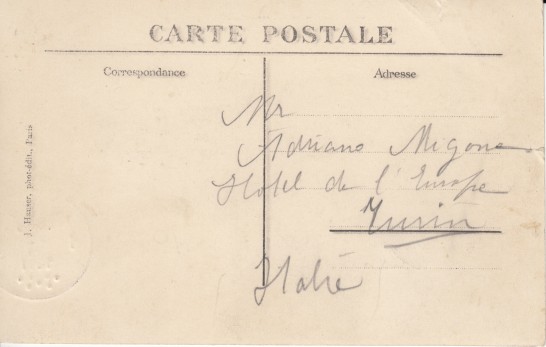 CARTE POSTALE
Correspondance
Adresse
Mr
Adriano Migone
Hotel de l'Europe
Turin
Italie
J. Hauser, phot-édit., Paris